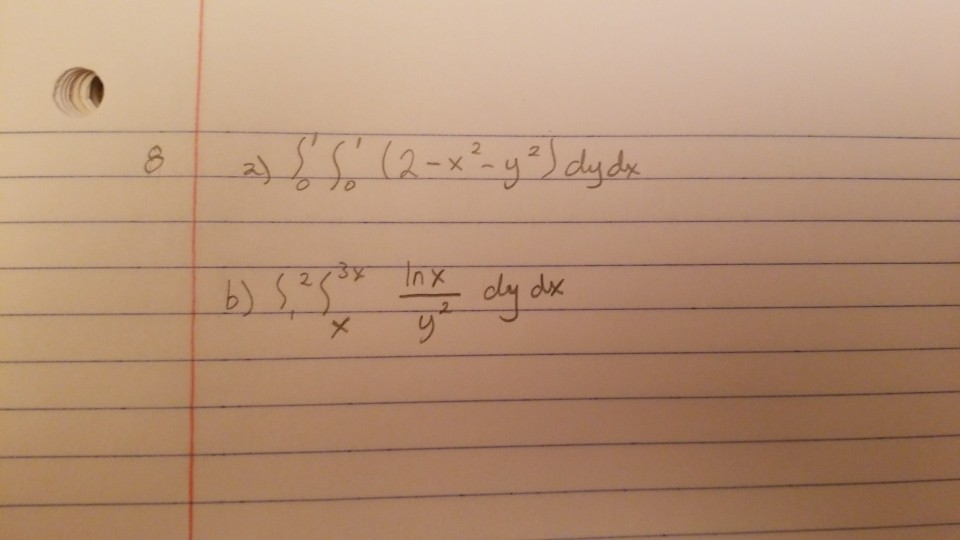 8 a) ∫₀¹ ∫₀¹ (2 - x² - y²) dy dx
b) ∫₁² ∫ₓ³ˣ ln x / y² dy dx